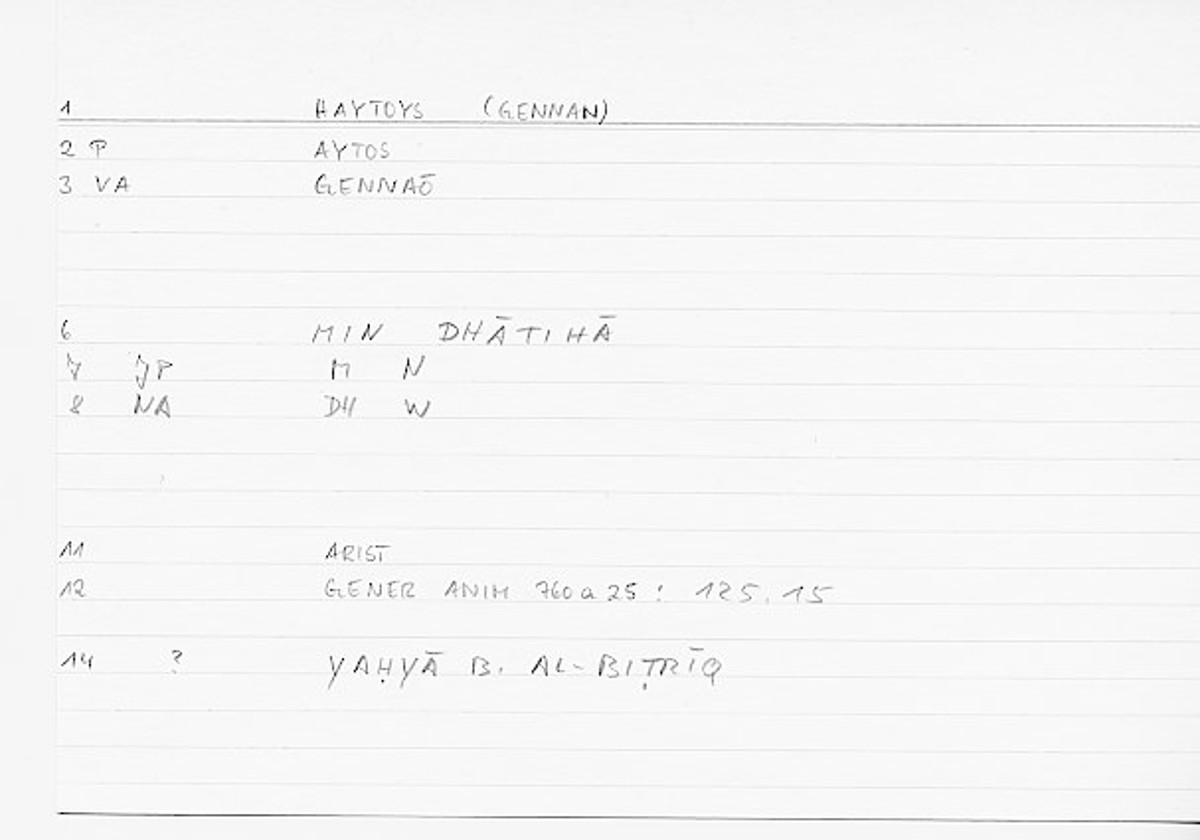 1 HAYTOYS (GENNAN)
2 P AYTOS
3 VA GENNAŌ
6 MIN DHĀTIHĀ
7 JP M N
8 NA DH W
11 ARIST
12 GENER ANIM 760 a 25 : 125.15
14 ? YAḤYĀ B. AL-BIṬRĪQ